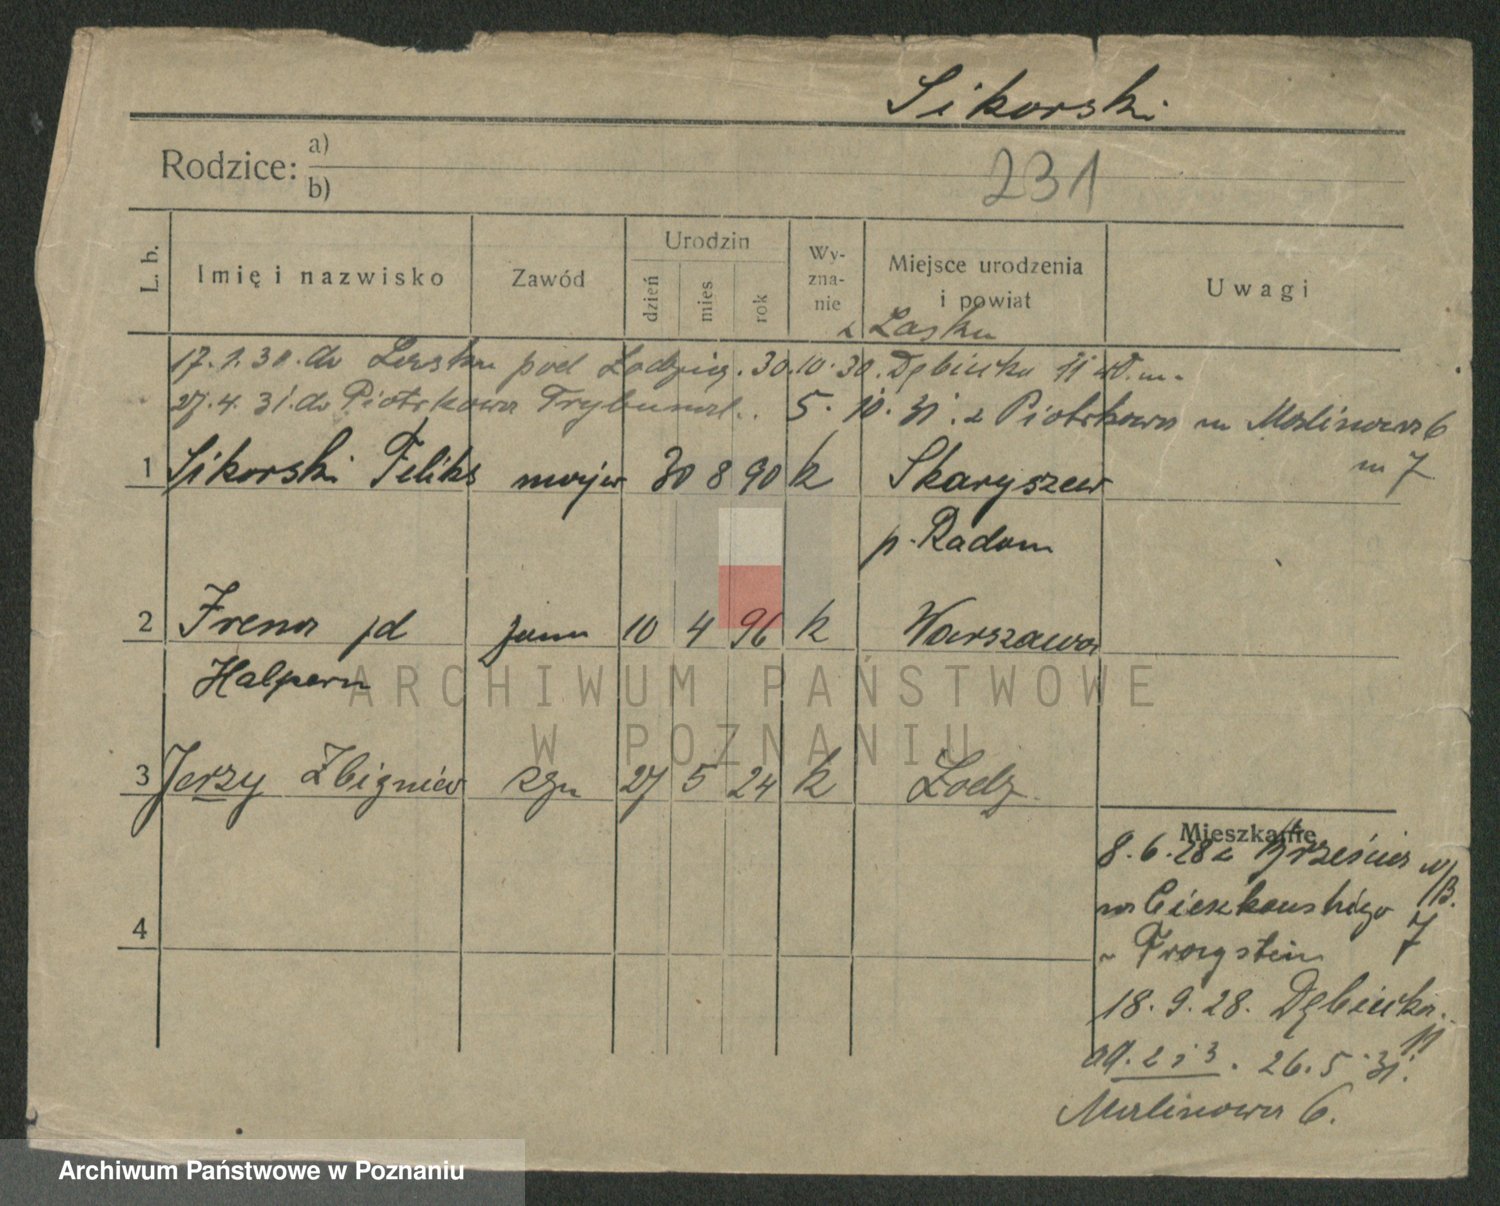 Sikorski
Rodzice: a)
b)
231
L. b. Imię i nazwisko Zawód Urodzin dzień mies. rok Wy-zna-nie Miejsce urodzenia i powiat Uwagi
z Łasku
17.1.30. do pod Łodzią. 30.10.30. Dębiecka 11
27.4.31. do Piotrkowa Trybunal. 5.10.31. z Piotrkowa m Malinowa 6
m 7
1 Sikorski Feliks 30 8 90 k Skaryszew
p. Radom
2 Irena jd żona 10 4 96 k Warszawa
Halpern
3 Jerzy Zbigniew syn 27 5 24 k Łodz
Mieszkanie
8.6.28 z Brześcia n/B.
na Cieszkowskiego 7
4
18.9.28. Dębiecka 11
od. 2 i 3. 26.5.31.
Malinowa 6.
ARCHIWUM PAŃSTWOWE
W POZNANIU
Archiwum Państwowe w Poznaniu